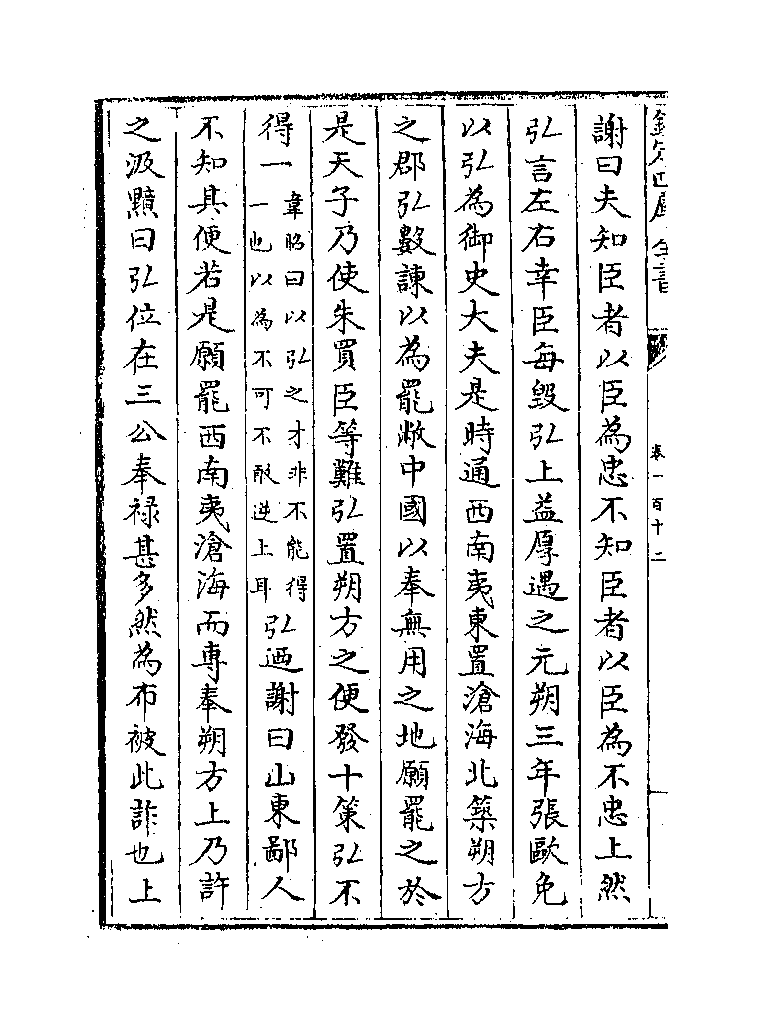 欽定四庫全書
卷一百十二
謝曰夫知臣者以臣為忠不知臣者以臣為不忠上然
弘言左右幸臣每毀弘上益厚遇之元朔三年張歐免
以弘為御史大夫是時通西南夷東置滄海北築朔方
之郡弘數諫以為罷敝中國以奉無用之地願罷之於
是天子乃使朱買臣等難弘置朔方之便發十策弘不
得一韋昭曰以弘之才非不能得一也以為不可不敢逆上耳弘迺謝曰山東鄙人
不知其便若是願罷西南夷滄海而專奉朔方上乃許
之汲黯曰弘位在三公奉祿甚多然為布被此詐也上